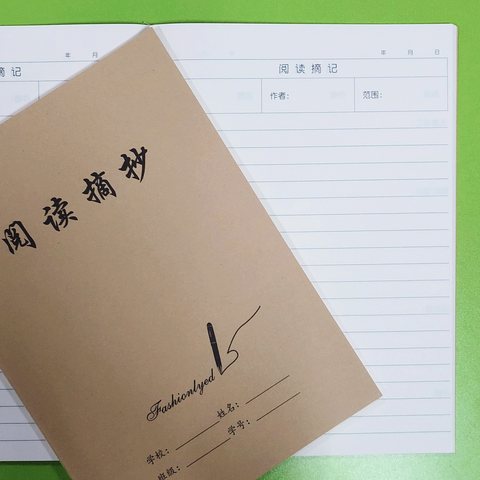 年 月
摘 记
年 月 日
阅 读 摘 记
作者： 范围：
阅读摘抄
Fashionlyed
学校： 姓名：
班级： 学号：